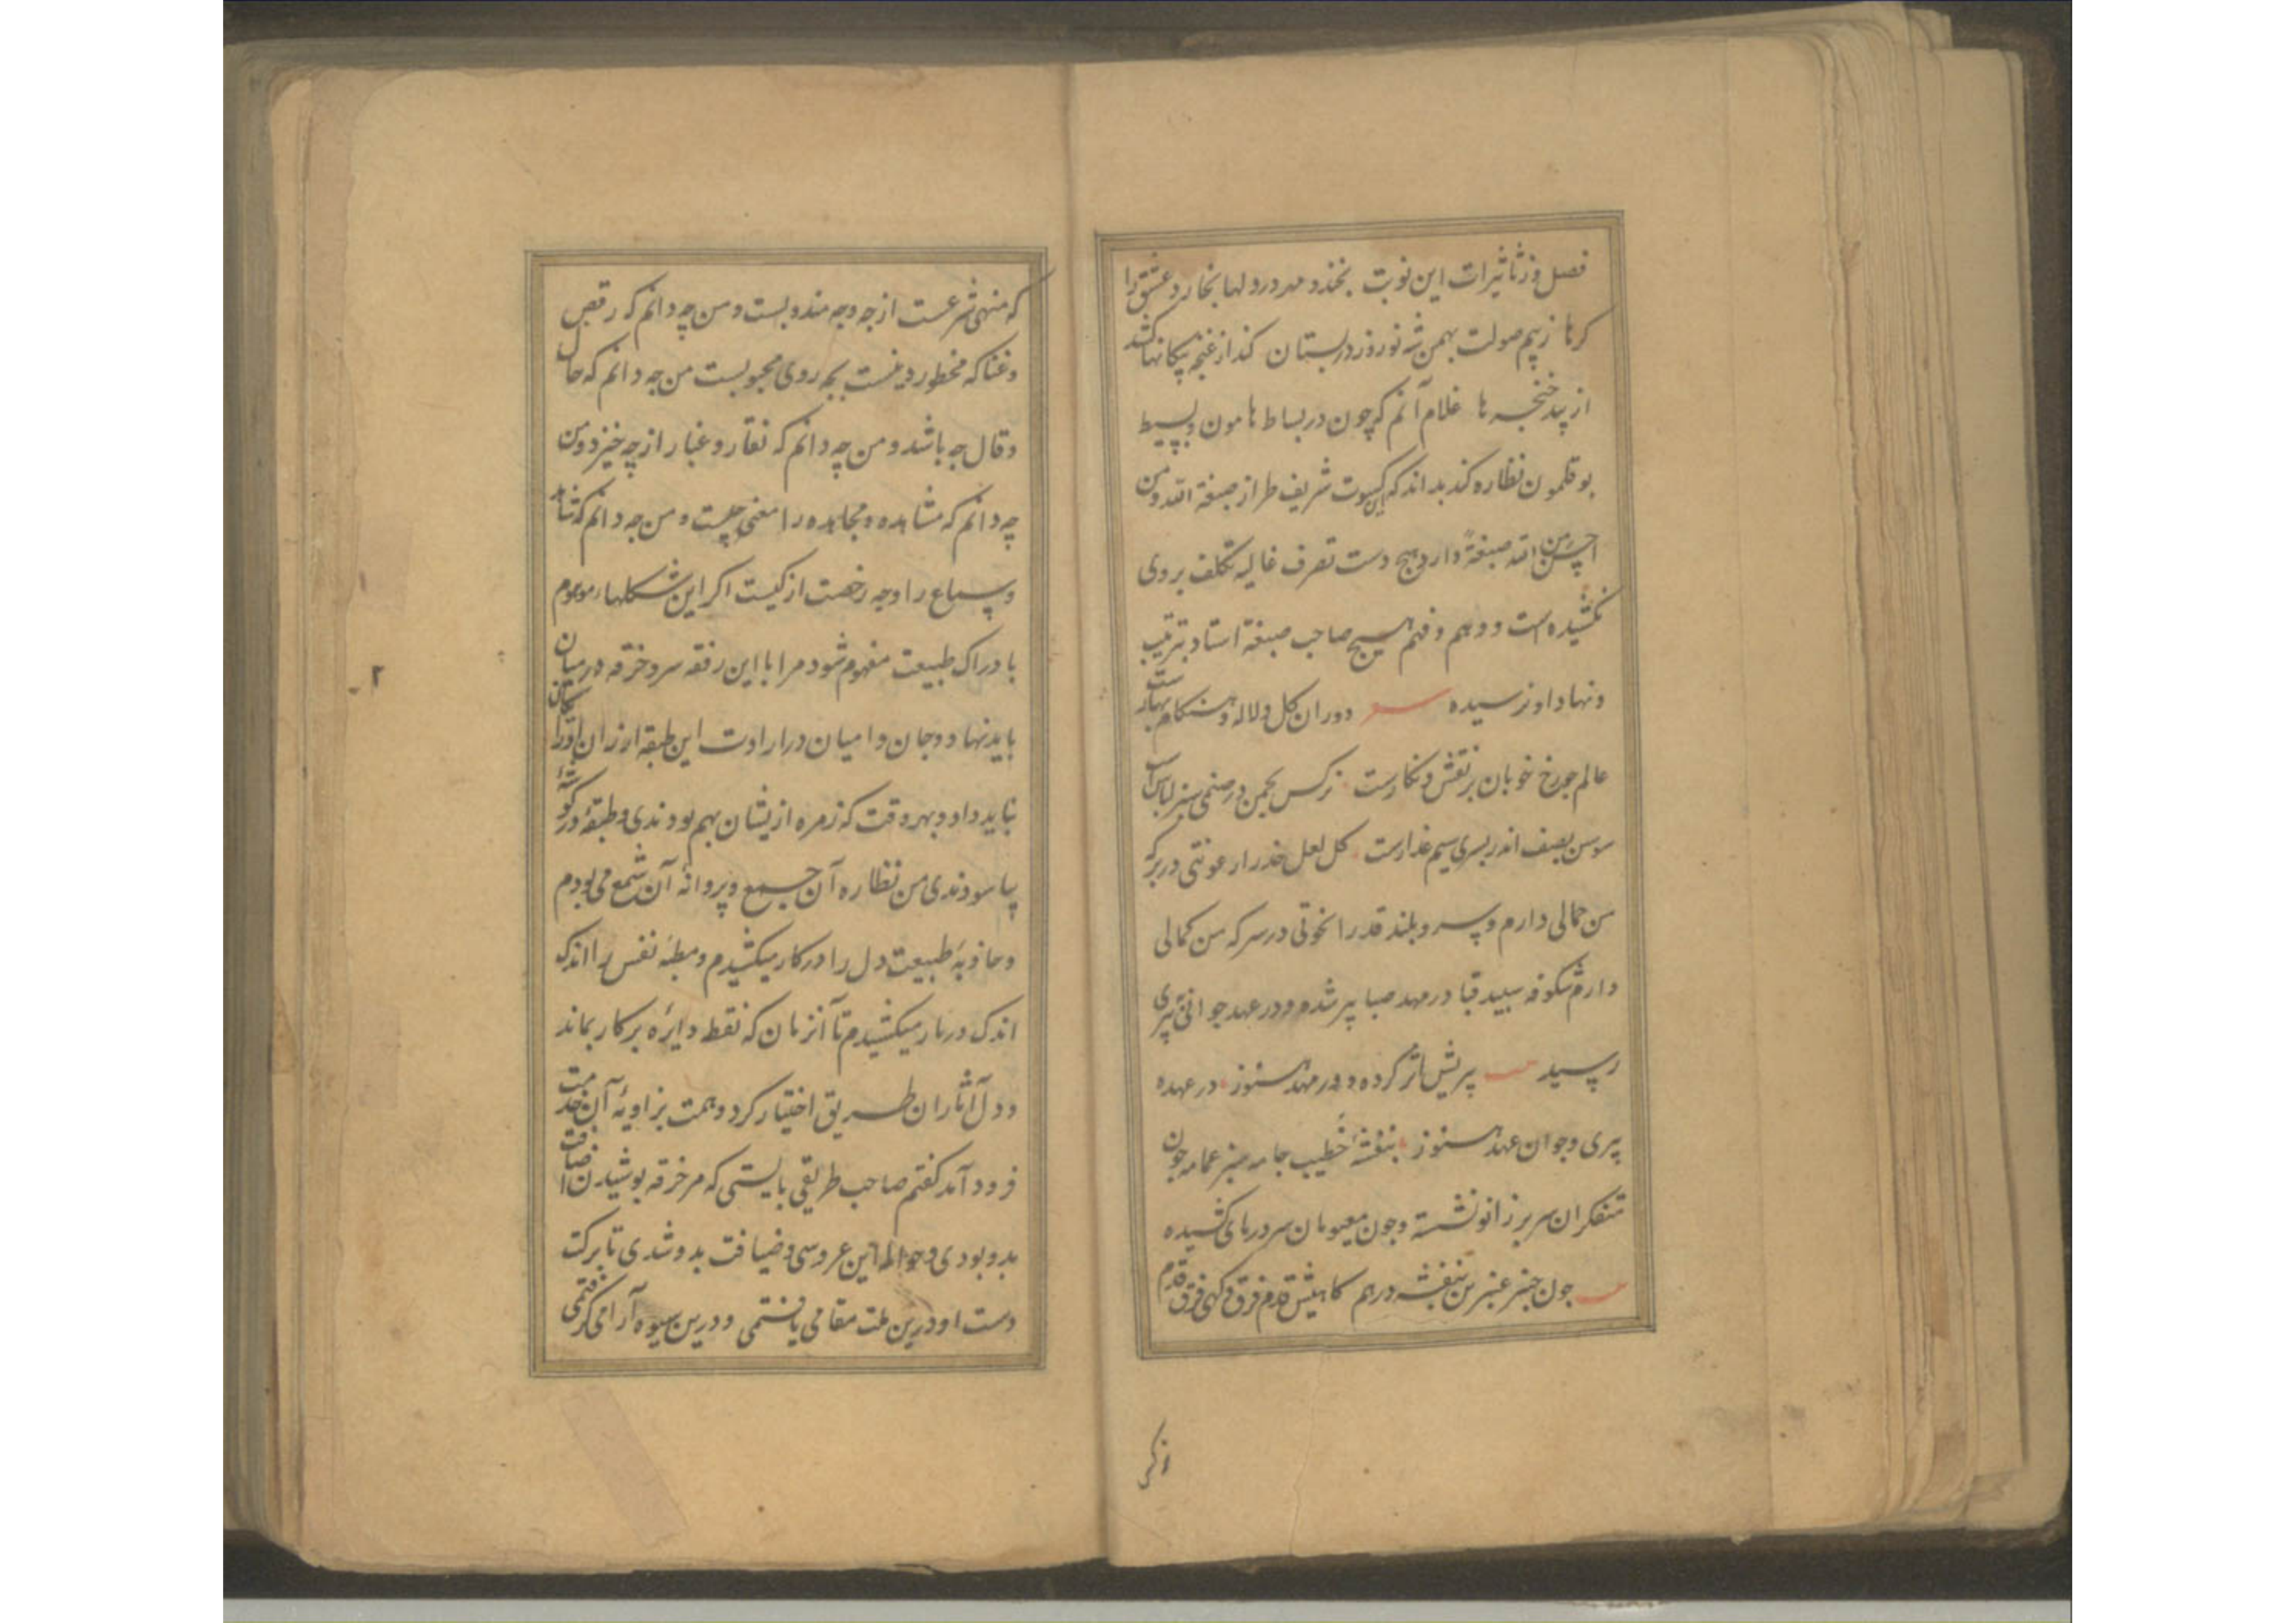 فصل وز تاثیرات این نوبت بخندد مهر در دلها بخارد عشق را
کرها ز بیم صولت بهمن شه نوروز در بستان کند از غنچه پیکانها کشد
از بید خنجرها غلام آنم که چون در بساط هامون و بسیط
بوقلمون نظاره کند بداند که این کسوت شریف طراز صبغة الله ومن
احسن من الله صبغةً دارد هیچ دست تصرف غالیه تکلف بر روی
نکشیده است و وهم و فهم هیچ صاحب صبغة استاد بترتیب
ونهاد او نرسیده دوران کل و لاله و هنکام بهارست
عالم جو رخ خوبان بر نقش و نکارست نرکس بجمن در صنمی سبز لباس است
سوسن بصف اندر بسری سیم عذارست کل لعل خد را رعونتی در بر که
من جمالی دارم و سرو بلند قد را نخوتی در سر که من کمالی
دارم شکوفه سپید قبا در مهد صبا پیر شده و در عهد جوانی به پیری
رسید پریش اثر کرده و در مهد هنوز در عهده
پیری و جوان عهد هنوز بنفشهٔ خطیب جامه سبز عمامه جون
متفکران سر بر زانو نشسته و جون مغمومان سر در پای کشیده
جون جنبر عنبرین بنفشه در هم کاهیش قدم فرق و کهی فرق قدم
که منهی شرعست از جه وجه مندوبست و من چه دانم که رقص
و غنا که محظور دینست بچه روی محبوبست من جه دانم که حال
و قال جه باشد و من چه دانم که نقار و غبار از چه خیزد ومن
چه دانم که مشاهده و مجاهده را معنی چیست و من جه دانم که شاهد
و سماع را وجه رخصت از کیست اکر این شکلهاء موهوم
بادراک طبیعت مفهوم شود مرا با این رفقه سر و خرقه در میان
باید نهاد و جان و امیان در ارادت این طبقه ارزان و رایکان
بباید داد و بهر وقت که زمره ازیشان بهم بودندی و طبقهٔ در کوشهٔ
بیاسودندی من نظاره آن جمع و پروانهٔ آن شمع می بودم
و جاذبهٔ طبیعت دل را در کار میکشیدم و مطیهٔ نفس را اندک
اندک در بار میکشیدم تا آنزمان که نقط دایره بر کار بماند
و دل آثار آن طریق اختیار کرد و همت بزاویهٔ آن خدمت
فرود آمد کفتم صاحب طریقی بایستی که مر خرقه پوشیدن اضافت
بدو بودی و حوالهٔ این عروسی و ضیافت بدو شدی تا ببرکت
دست او درین ملت مقامی یافتمی و درین شیوه آرامی کرفتمی